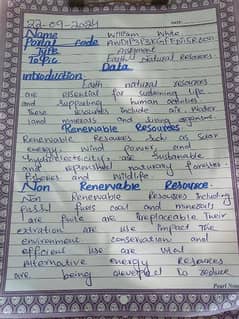 22-09-2024
DATE
Name William White
Portal Code
Type Assignment
Topic Earth Natural Resources
Data
introduction Earth natural resources
are essential for sustaining life
and supporting human activities
These resources include air, water
land minerals and living organism
Renewable Resources
Renewable Resources such as solar
energy, wind power, and
hydroelectricity, are sustainable
and replenished naturary forestes
fisheries wildlife
Non Renerwable Resource.
Non Renewable Resources including
fossil fuels coal and minerals
are finite are irreplaceable Their
extration are use impact the
environment conservation and
efficient use are vital
Alternative energy Resources
are being developed to reduce
Pearl Note